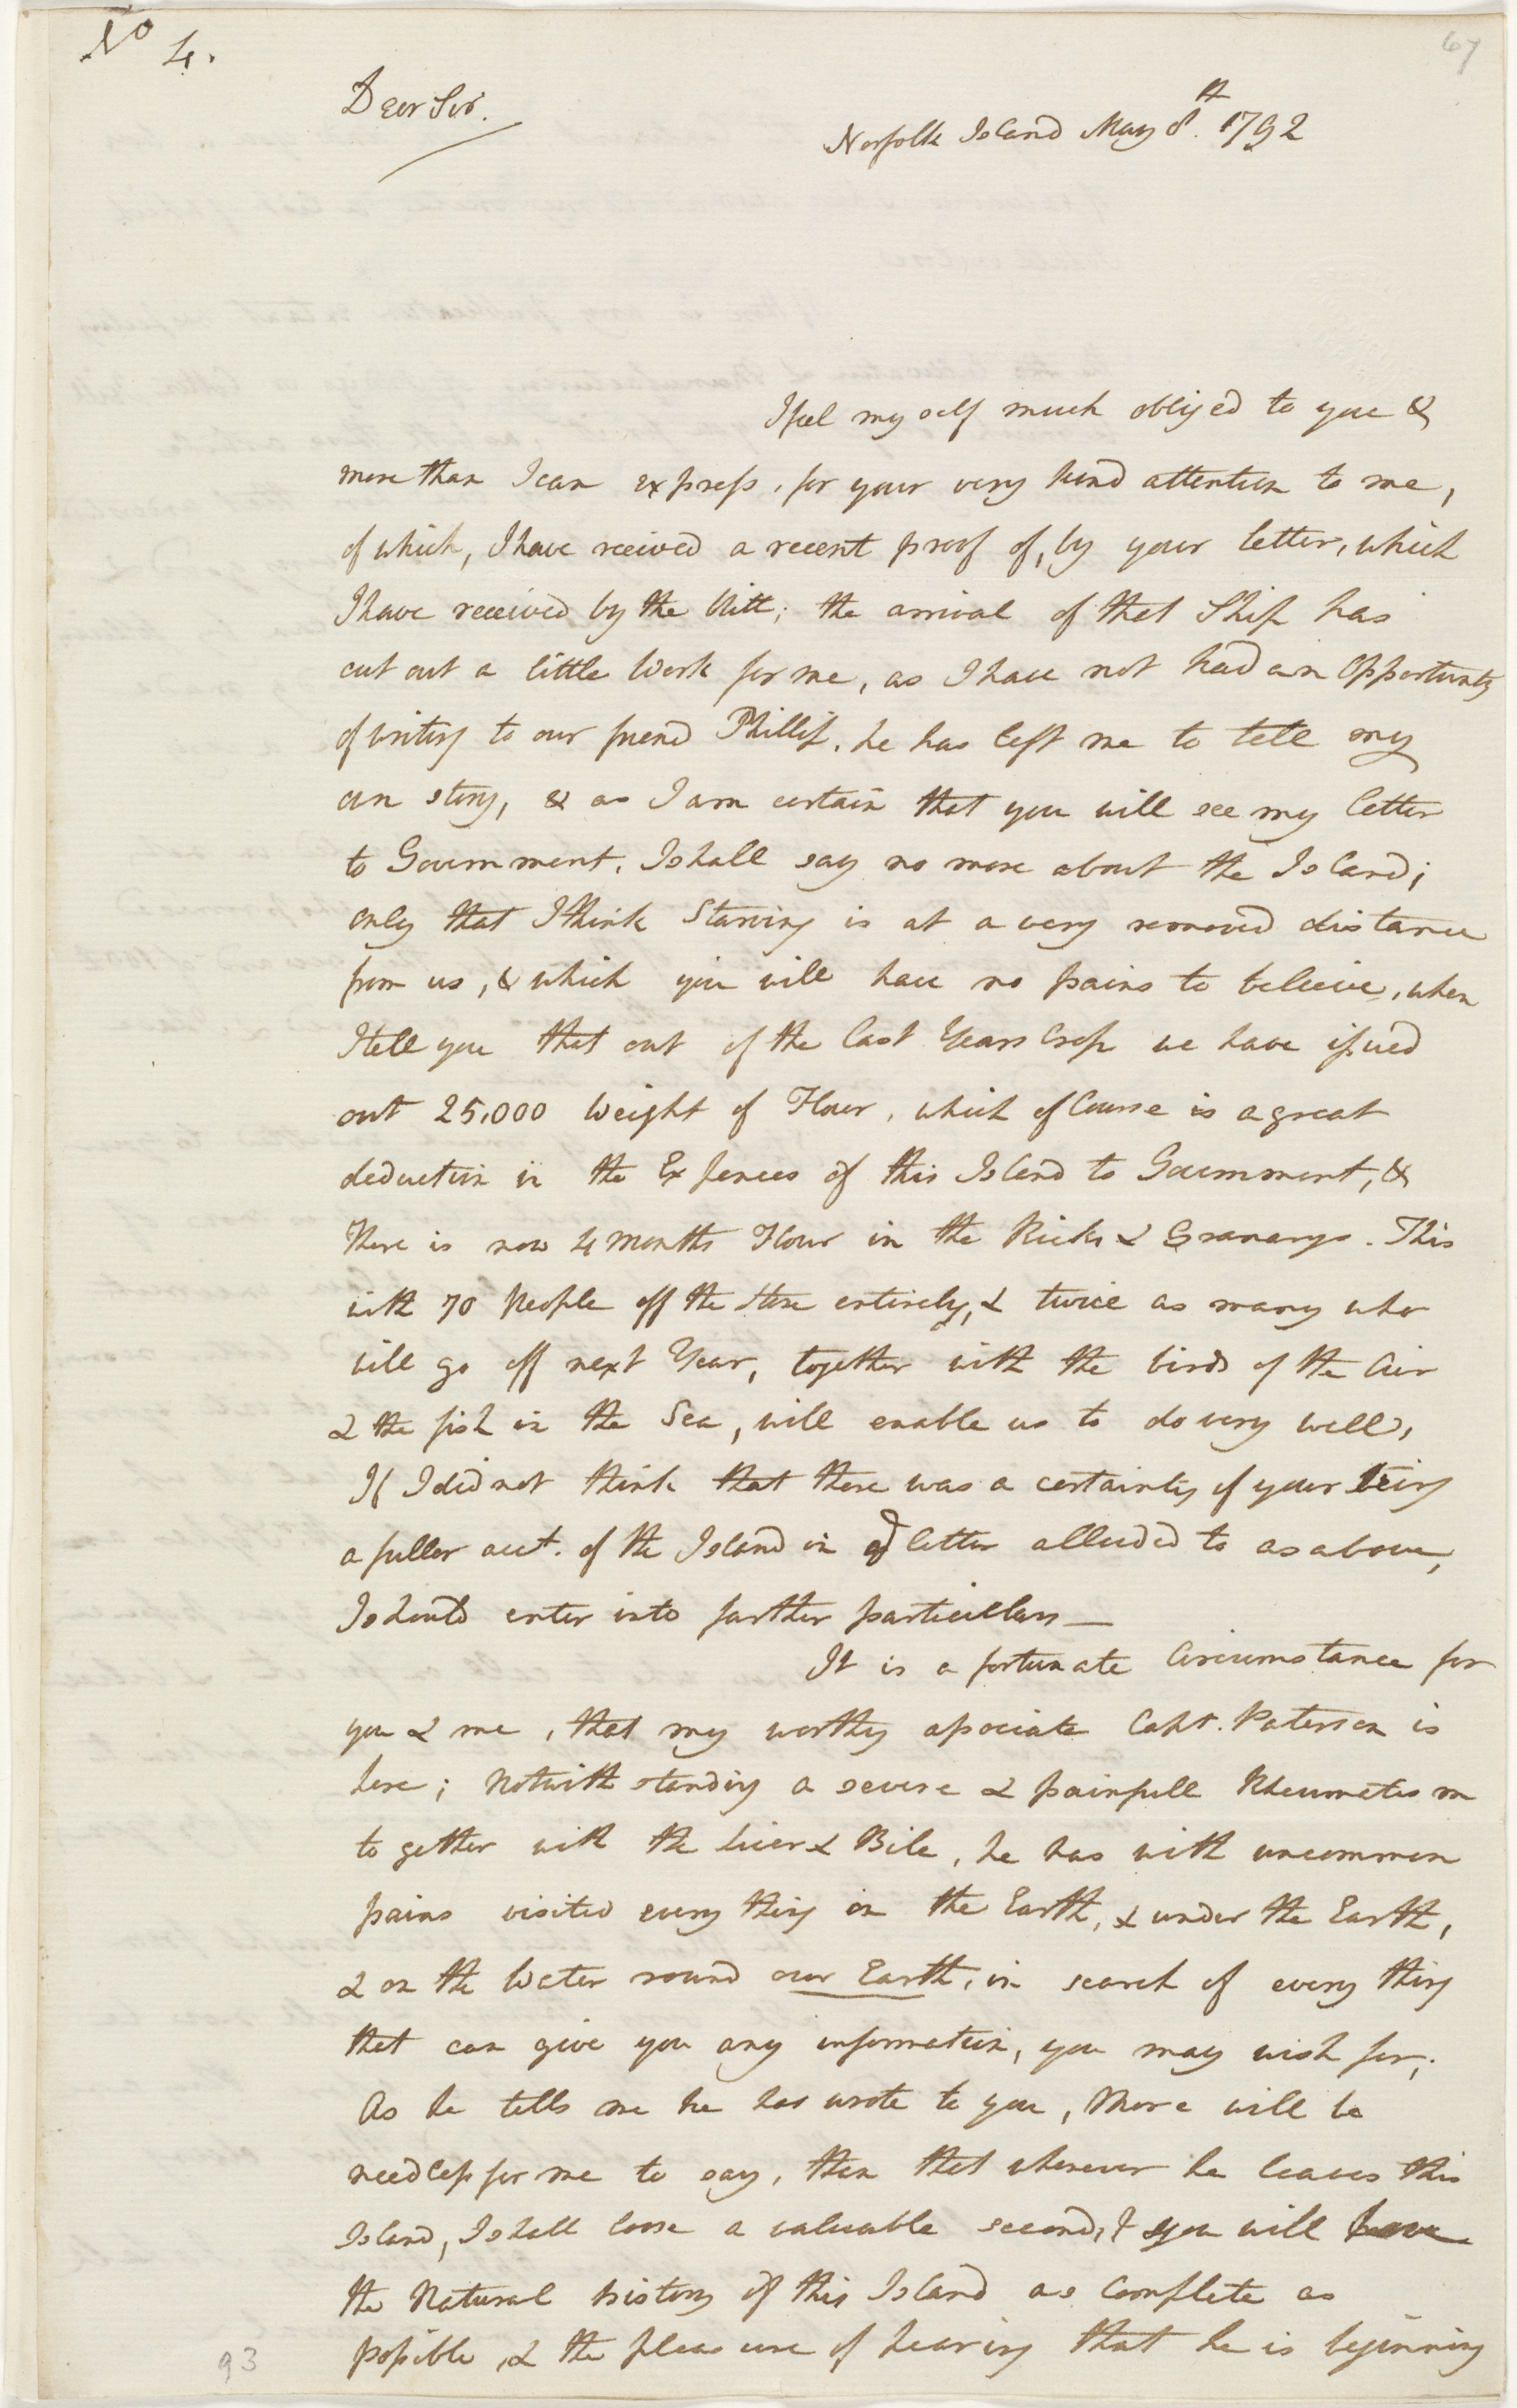 No 4.
67
Dear Sir.
Norfolk Island May 8th. 1792
I feel myself much obliged to you &
more than I can express, for your very kind attention to me,
of which, I have received a recent proof of, by your letter, which
I have received by the Pitt; the arrival of that Ship has
cut out a little Work for me, as I have not had an Opportunity
of writing to our friend Phillip, he has left me to tell my
own story, & as I am certain that you will see my letter
to Government, I shall say no more about the Island;
only that I think Starving is at a very removed distance
from us, & which you will have no pains to believe, when
I tell you that out of the last Years Crop we have issued
out 25,000 Weight of Flour, which of Course is a great
deduction in the Expences of this Island to Government, &
there is now 4 Months Flour in the Ricks & Granarys. This
with 70 People off the Store entirely, & twice as many who
will go off next Year, together with the birds of the Air
& the fish in the Sea, will enable us to do very well,
If I did not think that there was a certainty of your being
a fuller acct. of the Island in letter alluded to as above,
I should enter into further particulars —
It is a fortunate Circumstance for
you & me, that my worthy associate Capt. Paterson is
here; Notwithstanding a severe & painfull Rheumatism
to gether with the liver & Bile, he has with uncommon
pains visited every thing on the Earth, & under the Earth,
& on the Water round our Earth, in search of every thing
that can give you any information, you may wish for;
As he tells me he has wrote to you, More will be
needless for me to say, than that whenever he leaves this
Island, I shall loose a valuable second, & you will have
the Natural history of this Island as Complete as
possible, & the pleasure of hearing that he is beginning
93